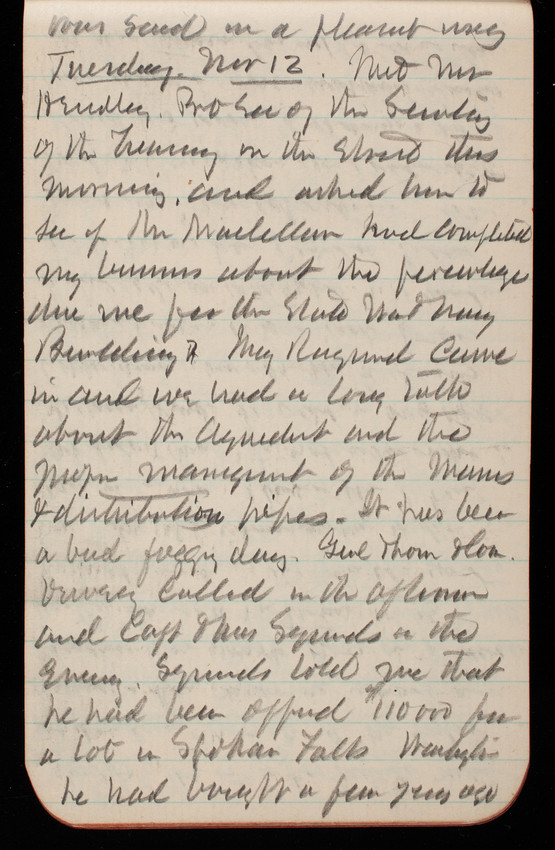 and in a pleasant way
Tuesday. Nov 12. Met Mr
Hendley. Pvt Sec of the Secretary
of the Treasury on the Street this
morning, and asked him to
see if Mr Maclellan had completed
my business about the percentage
due me for the State War & Navy
Building. Maj Raymond came
in and we had a long talk
about the Aqueduct and the
proper management of the Mains
& distribution pipes. It has been
a bad foggy day. Genl
called in the afternoon
and Capt & Mrs Symonds in the
Evening. Symonds told me that
he had been offered $11000 for
a lot in Spokan Falls Washington
he had bought a few years ago